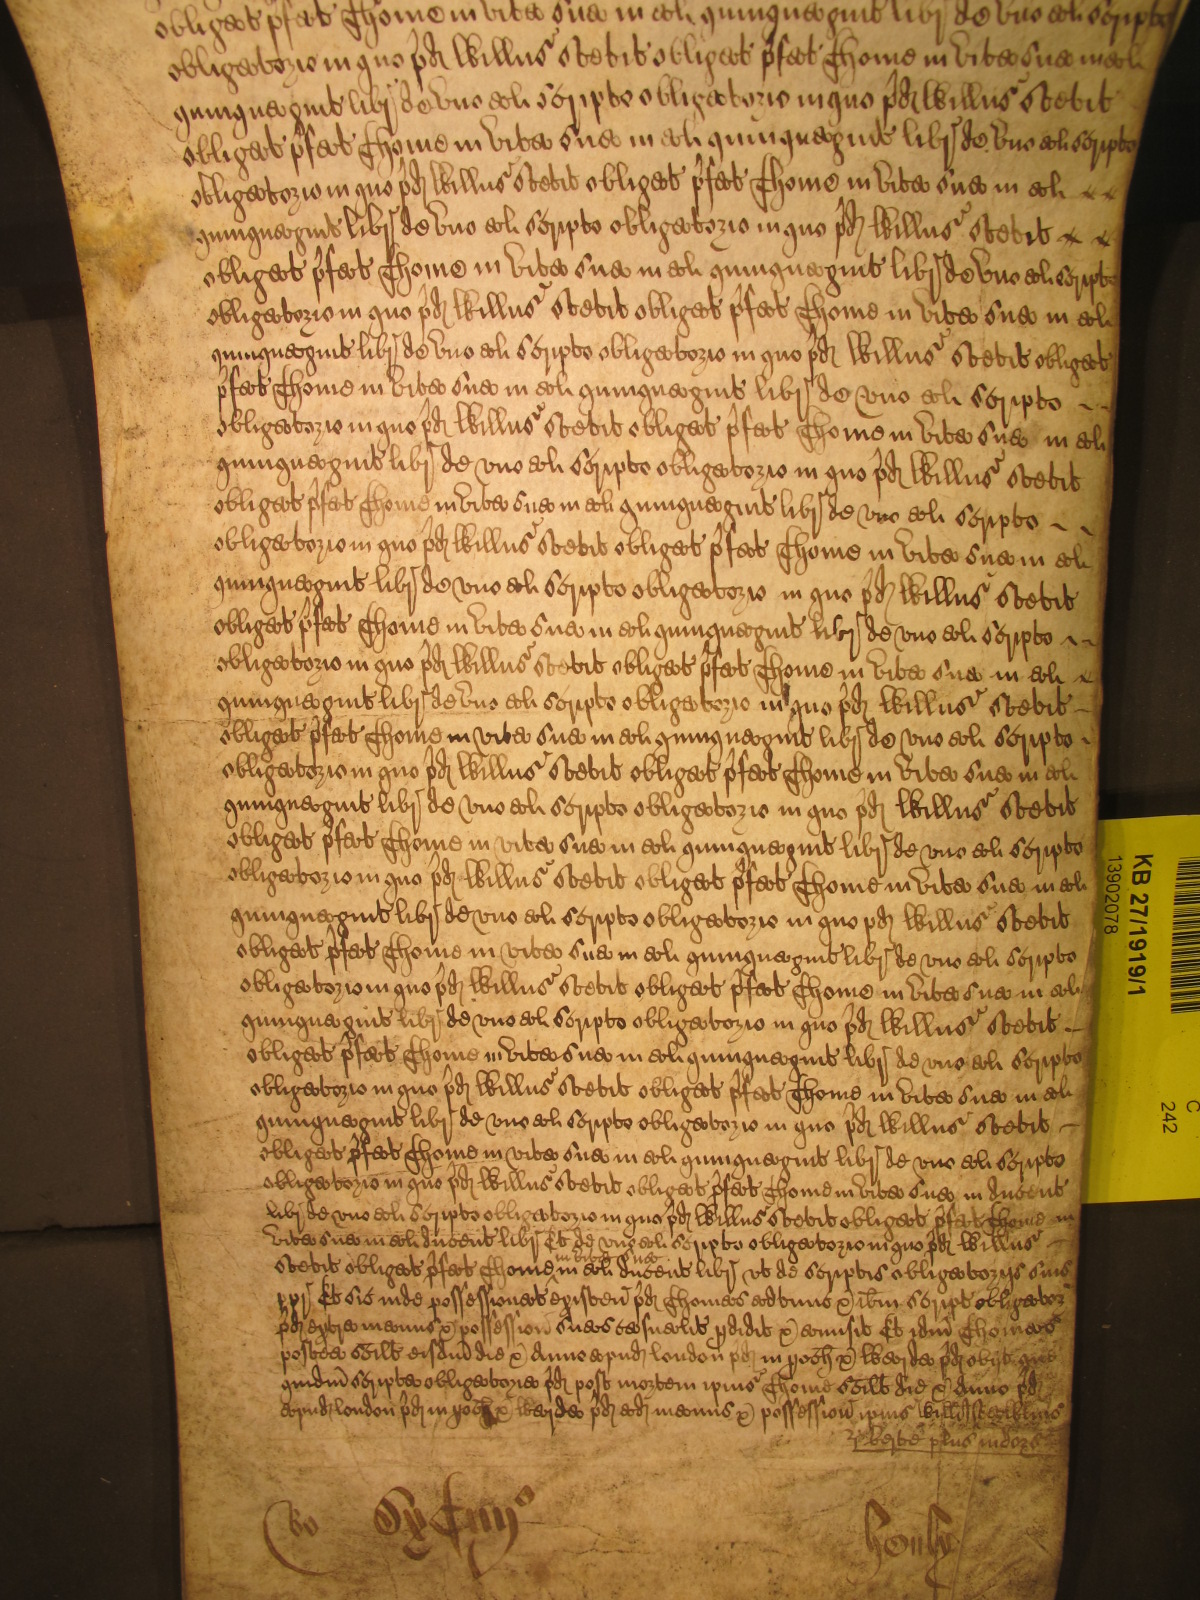 obligat p̄fat Thome in vita sua in ali quinquagint libr̄ de vno ali scripto
obligatorio in quo p̄d Willus stetit obligat p̄fat Thome in vita sua in ali
quinquagint libr̄ de vno ali scripto obligatorio in quo p̄d Willus stetit
obligat p̄fat Thome in vita sua in ali quinquagint libr̄ de vno ali scripto
obligatorio in quo p̄d Willus stetit obligat p̄fat Thome in vita sua in ali
quinquagint libr̄ de vno ali scripto obligatorio in quo p̄d Willus stetit
obligat p̄fat Thome in vita sua in ali quinquagint libr̄ de vno ali scripto
obligatorio in quo p̄d Willus stetit obligat p̄fat Thome in vita sua in ali
quinquagint libr̄ de vno ali scripto obligatorio in quo p̄d Willus stetit obligat
p̄fat Thome in vita sua in ali quinquagint libr̄ de vno ali scripto
obligatorio in quo p̄d Willus stetit obligat p̄fat Thome in vita sua in ali
quinquagint libr̄ de vno ali scripto obligatorio in quo p̄d Willus stetit
obligat p̄fat Thome in vita sua in ali quinquagint libr̄ de vno ali scripto
obligatorio in quo p̄d Willus stetit obligat p̄fat Thome in vita sua in ali
quinquagint libr̄ de vno ali scripto obligatorio in quo p̄d Willus stetit
obligat p̄fat Thome in vita sua in ali quinquagint libr̄ de vno ali scripto
obligatorio in quo p̄d Willus stetit obligat p̄fat Thome in vita sua in ali
quinquagint libr̄ de vno ali scripto obligatorio in quo p̄d Willus stetit
obligat p̄fat Thome in vita sua in ali quinquagint libr̄ de vno ali scripto
obligatorio in quo p̄d Willus stetit obligat p̄fat Thome in vita sua in ali
quinquagint libr̄ de vno ali scripto obligatorio in quo p̄d Willus stetit
obligat p̄fat Thome in vita sua in ali quinquagint libr̄ de vno ali scripto
obligatorio in quo p̄d Willus stetit obligat p̄fat Thome in vita sua in ali
quinquagint libr̄ de vno ali scripto obligatorio in quo p̄d Willus stetit
obligat p̄fat Thome in vita sua in ali quinquagint libr̄ de vno ali scripto
obligatorio in quo p̄d Willus stetit obligat p̄fat Thome in vita sua in ali
quinquagint libr̄ de vno ali scripto obligatorio in quo p̄d Willus stetit
obligat p̄fat Thome in vita sua in ali quinquagint libr̄ de vno ali scripto
obligatorio in quo p̄d Willus stetit obligat p̄fat Thome in vita sua in ali
quinquagint libr̄ de vno ali scripto obligatorio in quo p̄d Willus stetit
obligat p̄fat Thome in vita sua in ali quinquagint libr̄ de vno ali scripto
obligatorio in quo p̄d Willus stetit obligat p̄fat Thome in vita sua in ducent
libr̄ de vno ali scripto obligatorio in quo p̄d Willus stetit obligat p̄fat Thome in
vita sua in ali ducent libr̄ Et de vno ali scripto obligatorio in quo p̄d Willus
in vita sua
stetit obligat p̄fat Thome in ali ducent libr̄ vt de scriptis obligatorijs suis
ppr̄ Et sic inde possessionat existen p̄d Thomas adtunc & ib̄m script obligator
p̄d extra manus & possession suas casualit p̄didit & amisit Et idm Thomas
postea scilt eisdm die & anno apud london p̄d in poch & Warda p̄d obijt
quidm scripta obligatoria p̄d post mortem ipius Thome scilt die & anno p̄d
apud london p̄d in poch & Warda p̄d ad manus & possession ipius
plus in dors
KB 27/1919/1
13902078
C
242